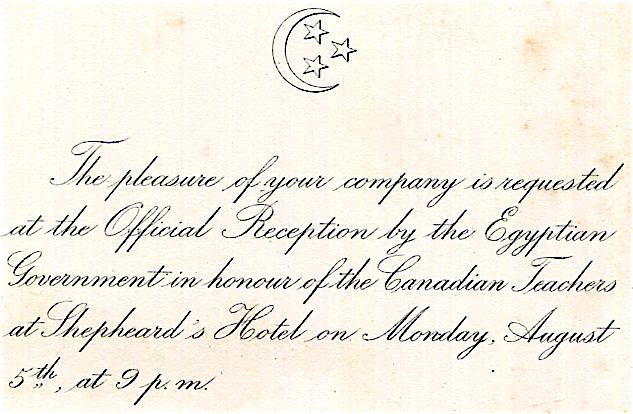 The pleasure of your company is requested
at the Official Reception by the Egyptian
Government in honour of the Canadian Teachers
at Shepheard's Hotel on Monday, August
5th, at 9 p.m.